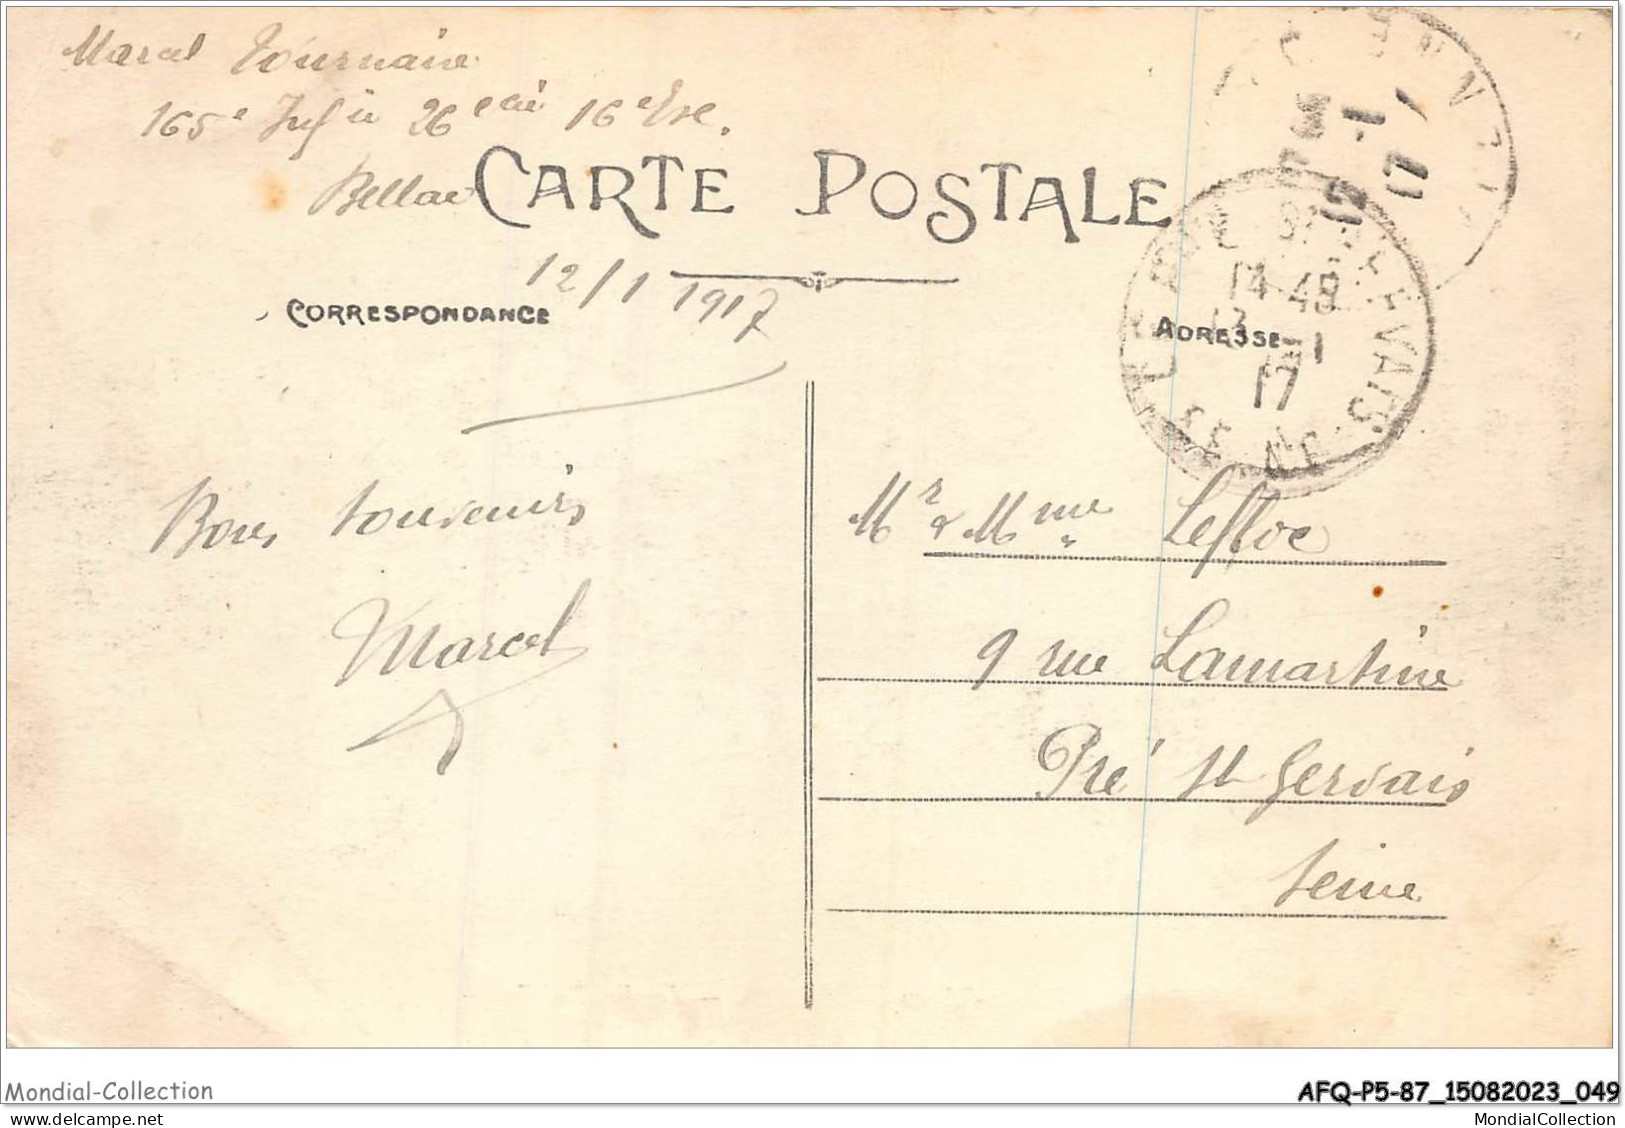 Marcel Tournaire
165e Infie 26e Cie 16e Esc.
Bellac
CARTE POSTALE
12/1 1917
CORRESPONDANCE
ADRESSE
LE PRÉ ST GERVAIS
14 45
13 -1
17
SEINE
Bons souvenirs
Marcel
Mr & Mme Lefloc
9 rue Lamartine
Pré St Gervais
Seine
Mondial-Collection
AFQ-P5-87_15082023_049
MondialCollection